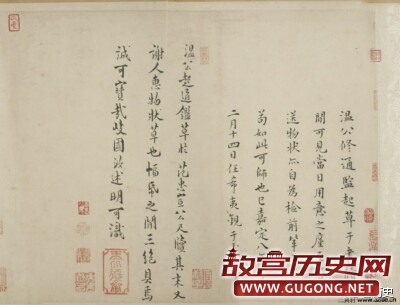 温公修通鑑起草于
間可見當日用意之
送物狀亦自為檢前軰
苟如此可師也已嘉定八
二月十四日任希夷觀于
温公起通鑑草於范忠宣公尺牘其末又
謝人惠物狀草也幅帋之間三絶具焉
誠可寶哉 國汝述明可識
故宫历史网
WWW.GUGONG.NET